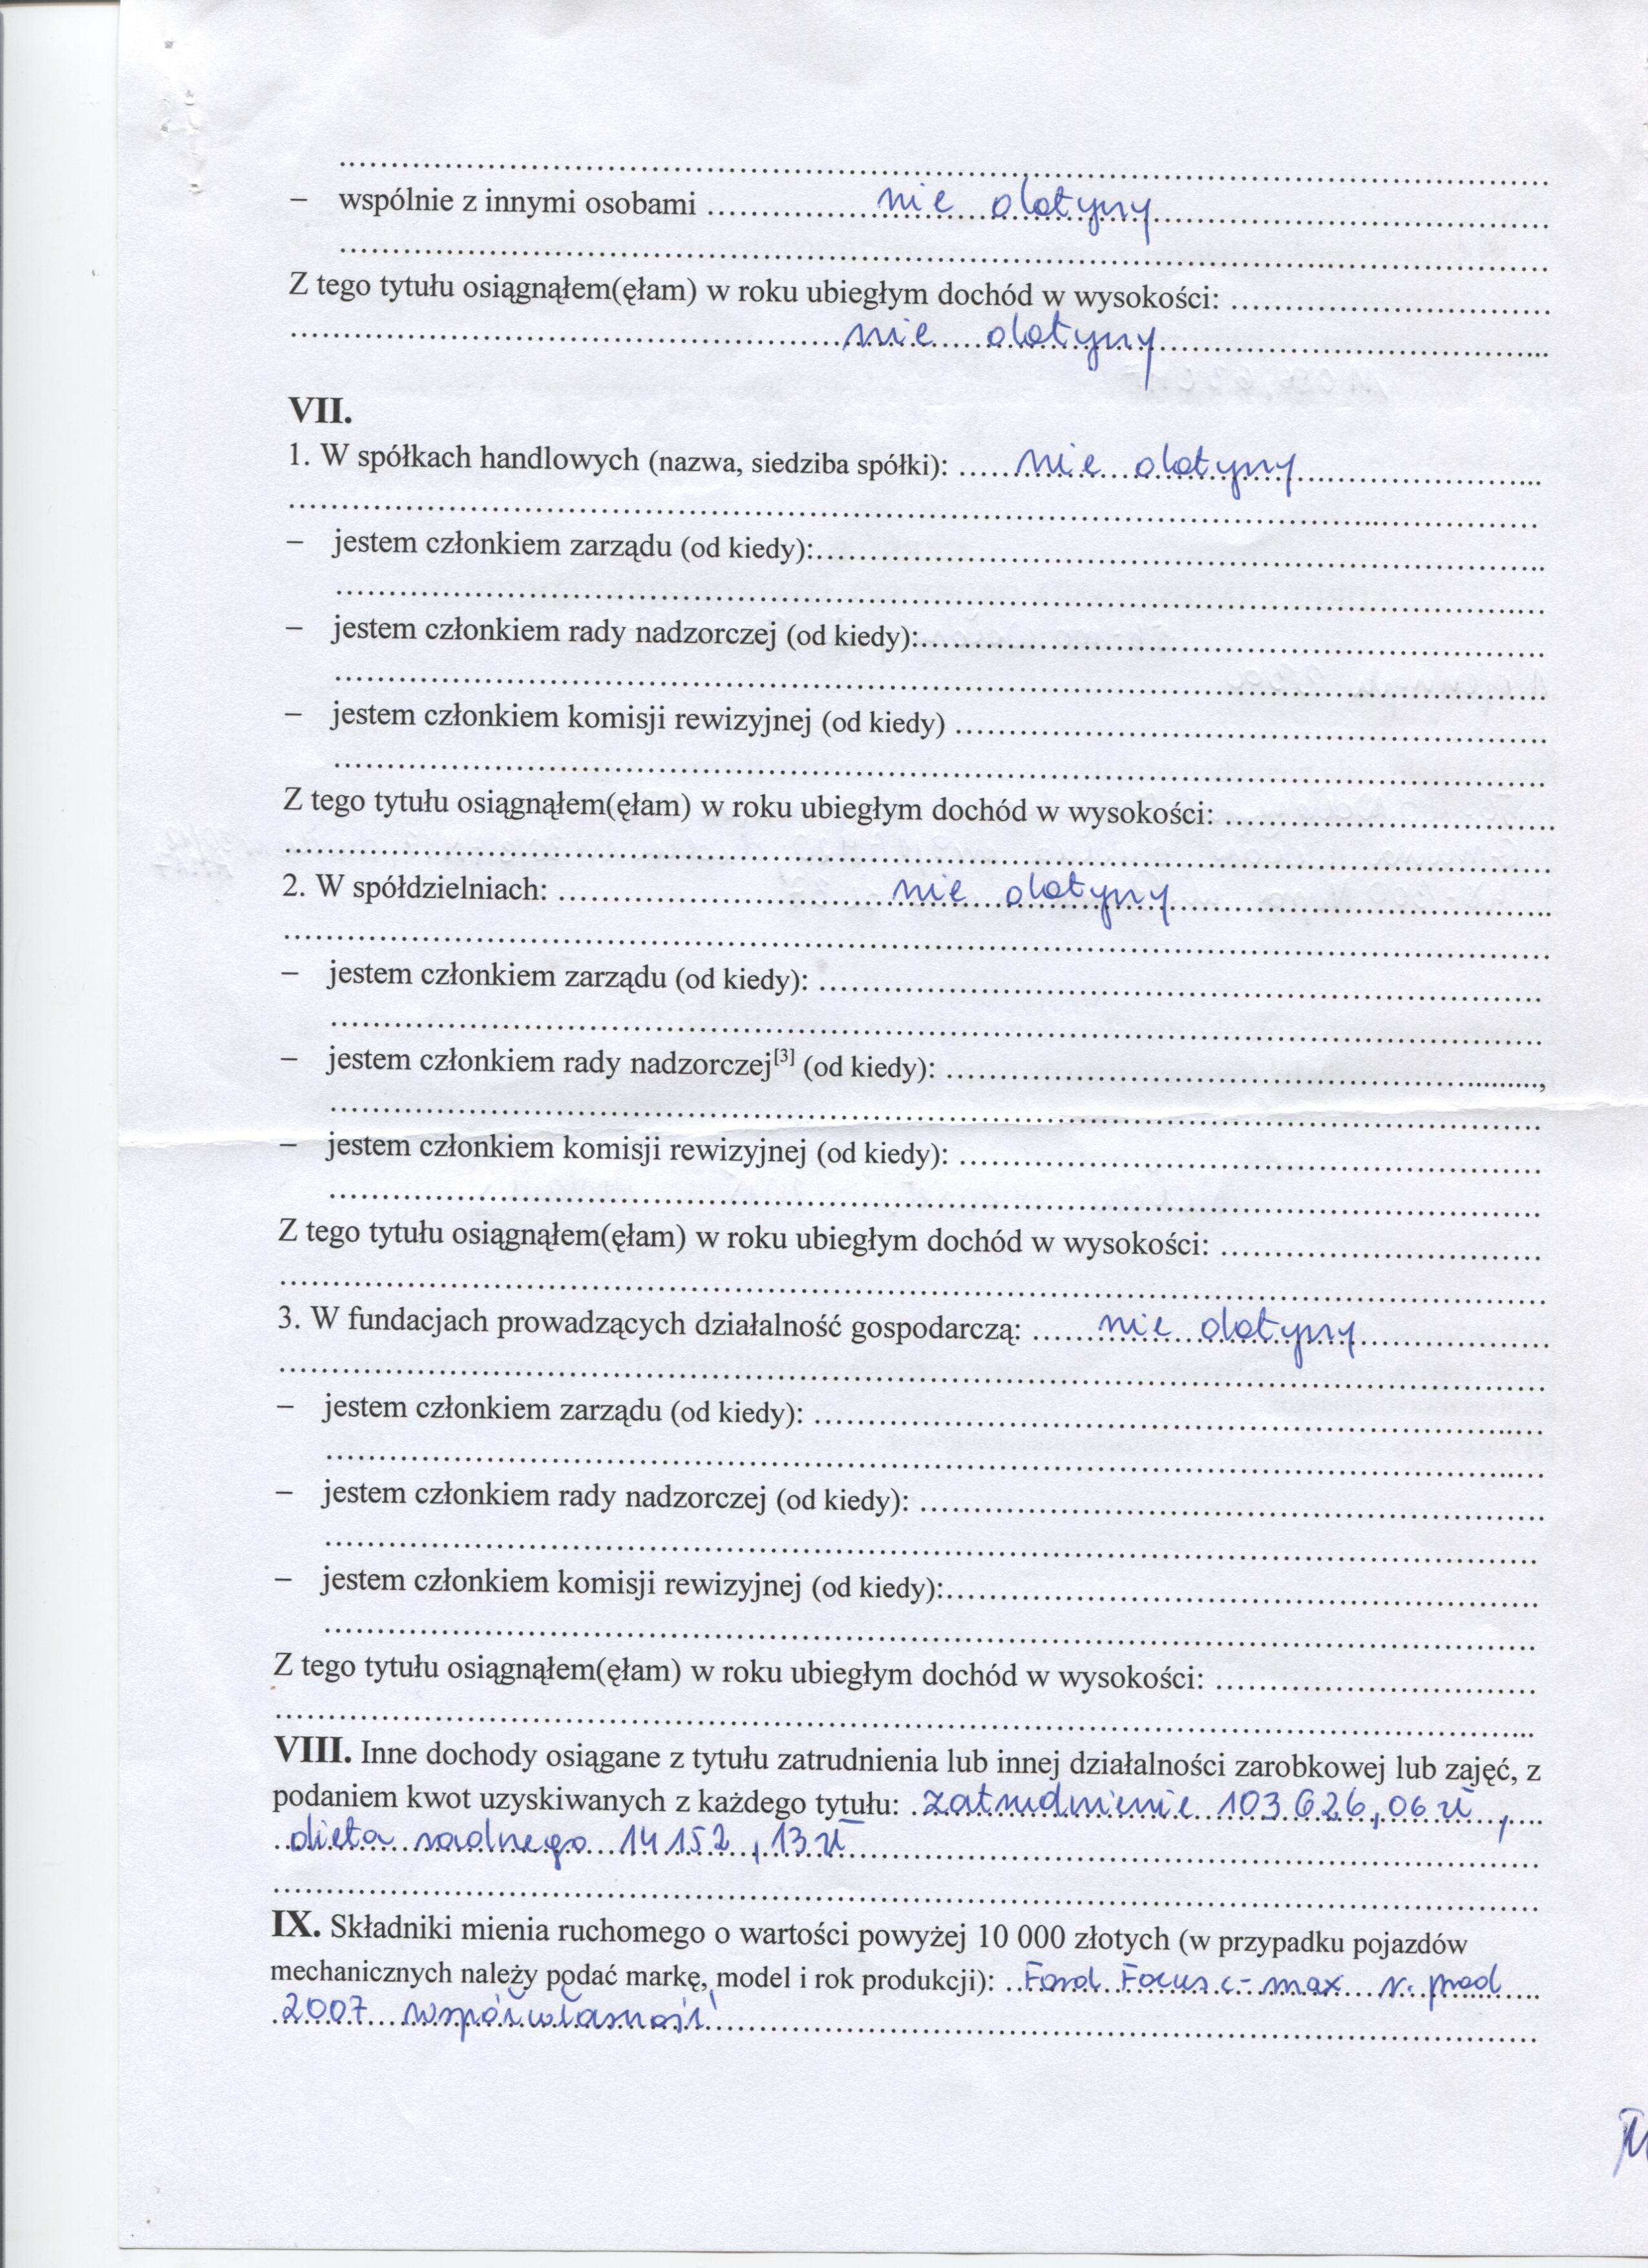 – wspólnie z innymi osobami ..... nie dotyczy .....
Z tego tytułu osiągnąłem(ęłam) w roku ubiegłym dochód w wysokości: .....
..... nie dotyczy .....
VII.
1. W spółkach handlowych (nazwa, siedziba spółki): ..... nie dotyczy .....
– jestem członkiem zarządu (od kiedy):.....
– jestem członkiem rady nadzorczej (od kiedy):.....
– jestem członkiem komisji rewizyjnej (od kiedy) .....
Z tego tytułu osiągnąłem(ęłam) w roku ubiegłym dochód w wysokości: .....
2. W spółdzielniach: ..... nie dotyczy .....
– jestem członkiem zarządu (od kiedy): .....
– jestem członkiem rady nadzorczej[3] (od kiedy): .....,
– jestem członkiem komisji rewizyjnej (od kiedy): .....
Z tego tytułu osiągnąłem(ęłam) w roku ubiegłym dochód w wysokości: .....
3. W fundacjach prowadzących działalność gospodarczą: ..... nie dotyczy .....
– jestem członkiem zarządu (od kiedy): .....
– jestem członkiem rady nadzorczej (od kiedy): .....
– jestem członkiem komisji rewizyjnej (od kiedy):.....
Z tego tytułu osiągnąłem(ęłam) w roku ubiegłym dochód w wysokości: .....
VIII. Inne dochody osiągane z tytułu zatrudnienia lub innej działalności zarobkowej lub zajęć, z
podaniem kwot uzyskiwanych z każdego tytułu: zatrudnienie 103 626,06 zł,
dieta radnego 14 152,13 zł
IX. Składniki mienia ruchomego o wartości powyżej 10 000 złotych (w przypadku pojazdów
mechanicznych należy podać markę, model i rok produkcji): Ford Focus c-max r. prod
2007 współwłasność